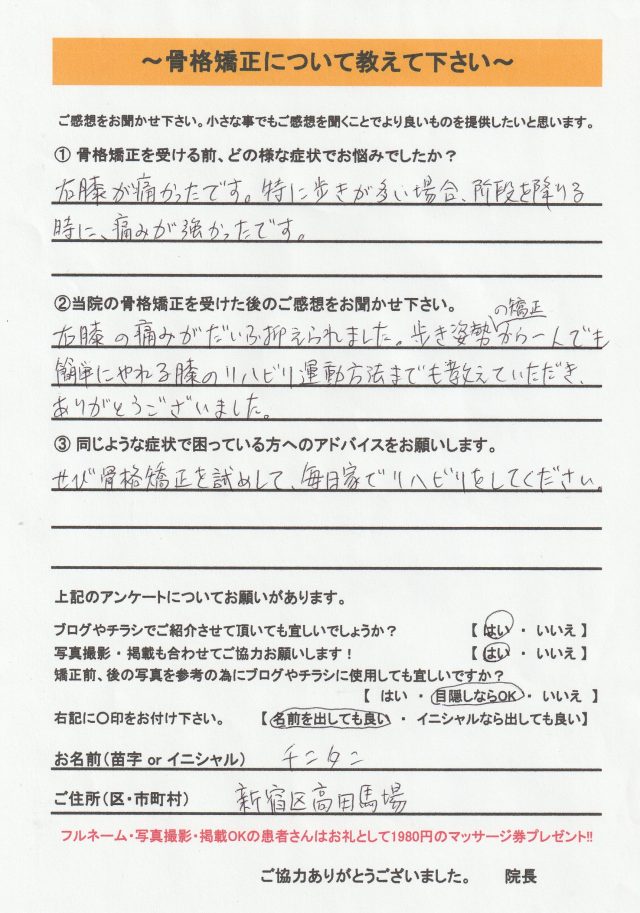 ～骨格矯正について教えて下さい～
ご感想をお聞かせ下さい。小さな事でもご感想を聞くことでより良いものを提供したいと思います。
① 骨格矯正を受ける前、どの様な症状でお悩みでしたか？
右膝が痛かったです。特に歩きが多い場合、階段を降りる
時に、痛みが強かったです。
②当院の骨格矯正を受けた後のご感想をお聞かせ下さい。
の矯正
右膝の痛みがだいぶ抑えられました。歩き姿勢から一人でも
簡単にやれる膝のリハビリ運動方法までも教えていただき、
ありがとうございました。
③ 同じような症状で困っている方へのアドバイスをお願いします。
せび骨格矯正を試めして、毎日家でリハビリをしてください。
上記のアンケートについてお願いがあります。
ブログやチラシでご紹介させて頂いても宜しいでしょうか？ 【 はい ・ いいえ 】
写真撮影・掲載も合わせてご協力お願いします！ 【 はい ・ いいえ 】
矯正前、後の写真を参考の為にブログやチラシに使用しても宜しいですか？
【 はい ・ 目隠しならOK ・ いいえ 】
右記に○印をお付け下さい。 【 名前を出しても良い ・ イニシャルなら出しても良い】
お名前（苗字 or イニシャル） チンタン
ご住所（区・市町村） 新宿区高田馬場
フルネーム・写真撮影・掲載OKの患者さんはお礼として1980円のマッサージ券プレゼント!!
ご協力ありがとうございました。 院長